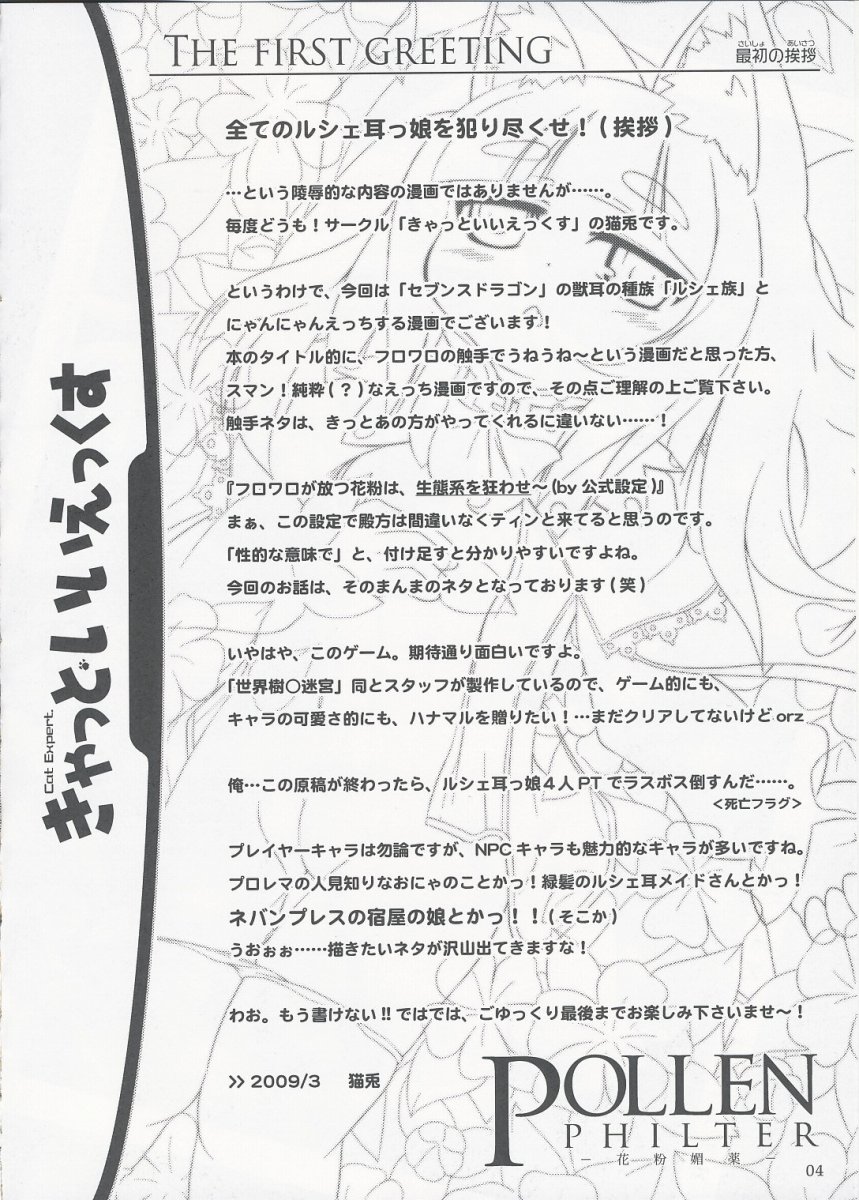 THE FIRST GREETING
さいしょ あいさつ
最初の挨拶
全てのルシェ耳っ娘を犯り尽くせ！(挨拶)
…という陵辱的な内容の漫画ではありませんが……。
毎度どうも！サークル「きゃっといいえっくす」の猫兎です。
というわけで、今回は「セブンスドラゴン」の獣耳の種族「ルシェ族」と
にゃんにゃんえっちする漫画でございます！
本のタイトル的に、フロワロの触手でうねうね～という漫画だと思った方、
スマン！純粋(？)なえっち漫画ですので、その点ご理解の上ご覧下さい。
触手ネタは、きっとあの方がやってくれるに違いない……！
『フロワロが放つ花粉は、生態系を狂わせ～(by 公式設定)』
まぁ、この設定で殿方は間違いなくティンと来てると思うのです。
「性的な意味で」と、付け足すと分かりやすいですよね。
今回のお話は、そのまんまのネタとなっております(笑)
いやはや、このゲーム。期待通り面白いですよ。
「世界樹〇迷宮」同とスタッフが製作しているので、ゲーム的にも、
キャラの可愛さ的にも、ハナマルを贈りたい！…まだクリアしてないけど orz
俺…この原稿が終わったら、ルシェ耳っ娘４人 PT でラスボス倒すんだ……。
＜死亡フラグ＞
プレイヤーキャラは勿論ですが、NPC キャラも魅力的なキャラが多いですね。
プロレマの人見知りなおにゃのことかっ！緑髪のルシェ耳メイドさんとかっ！
ネバンプレスの宿屋の娘とかっ！！(そこか)
うおぉぉ……描きたいネタが沢山出てきますな！
わお。もう書けない!! ではでは、ごゆっくり最後までお楽しみ下さいませ～！
>> 2009/3 猫兎
きゃっといいえっくす
Cat Expert.
POLLEN
PHILTER
－花粉媚薬－
04